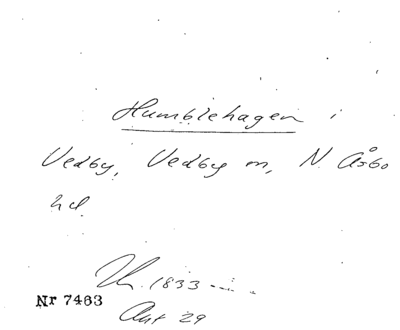 Humblehagen i
Vedby, Vedby sn, N Åsbo
hd
1833
Nr 7463
Akt 29